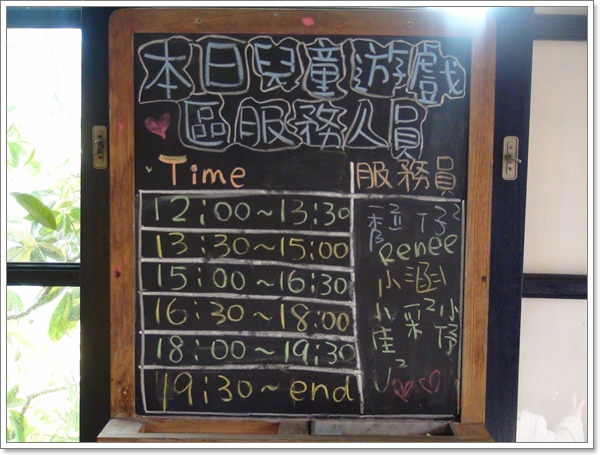 本日兒童遊戲
區服務人員
Time 服務員
12:00~13:30
13:30~15:00 Renee
15:00~16:30 小涵
16:30~18:00
18:00~19:30
19:30~end